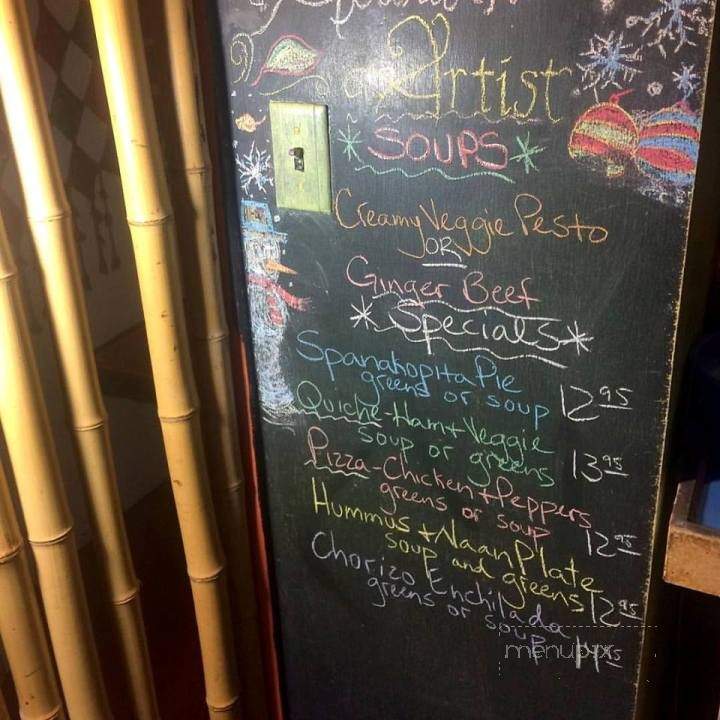 Artist
SOUPS
Creamy Veggie Pesto
OR
Ginger Beef
Specials
Spanakopita Pie
greens or soup 12.95
Quiche - Ham + Veggie
soup or greens 13.95
Pizza - Chicken + Peppers
greens or soup 12.95
Hummus + Naan Plate
soup and greens 12.95
Chorizo Enchilada
greens or soup
menupix